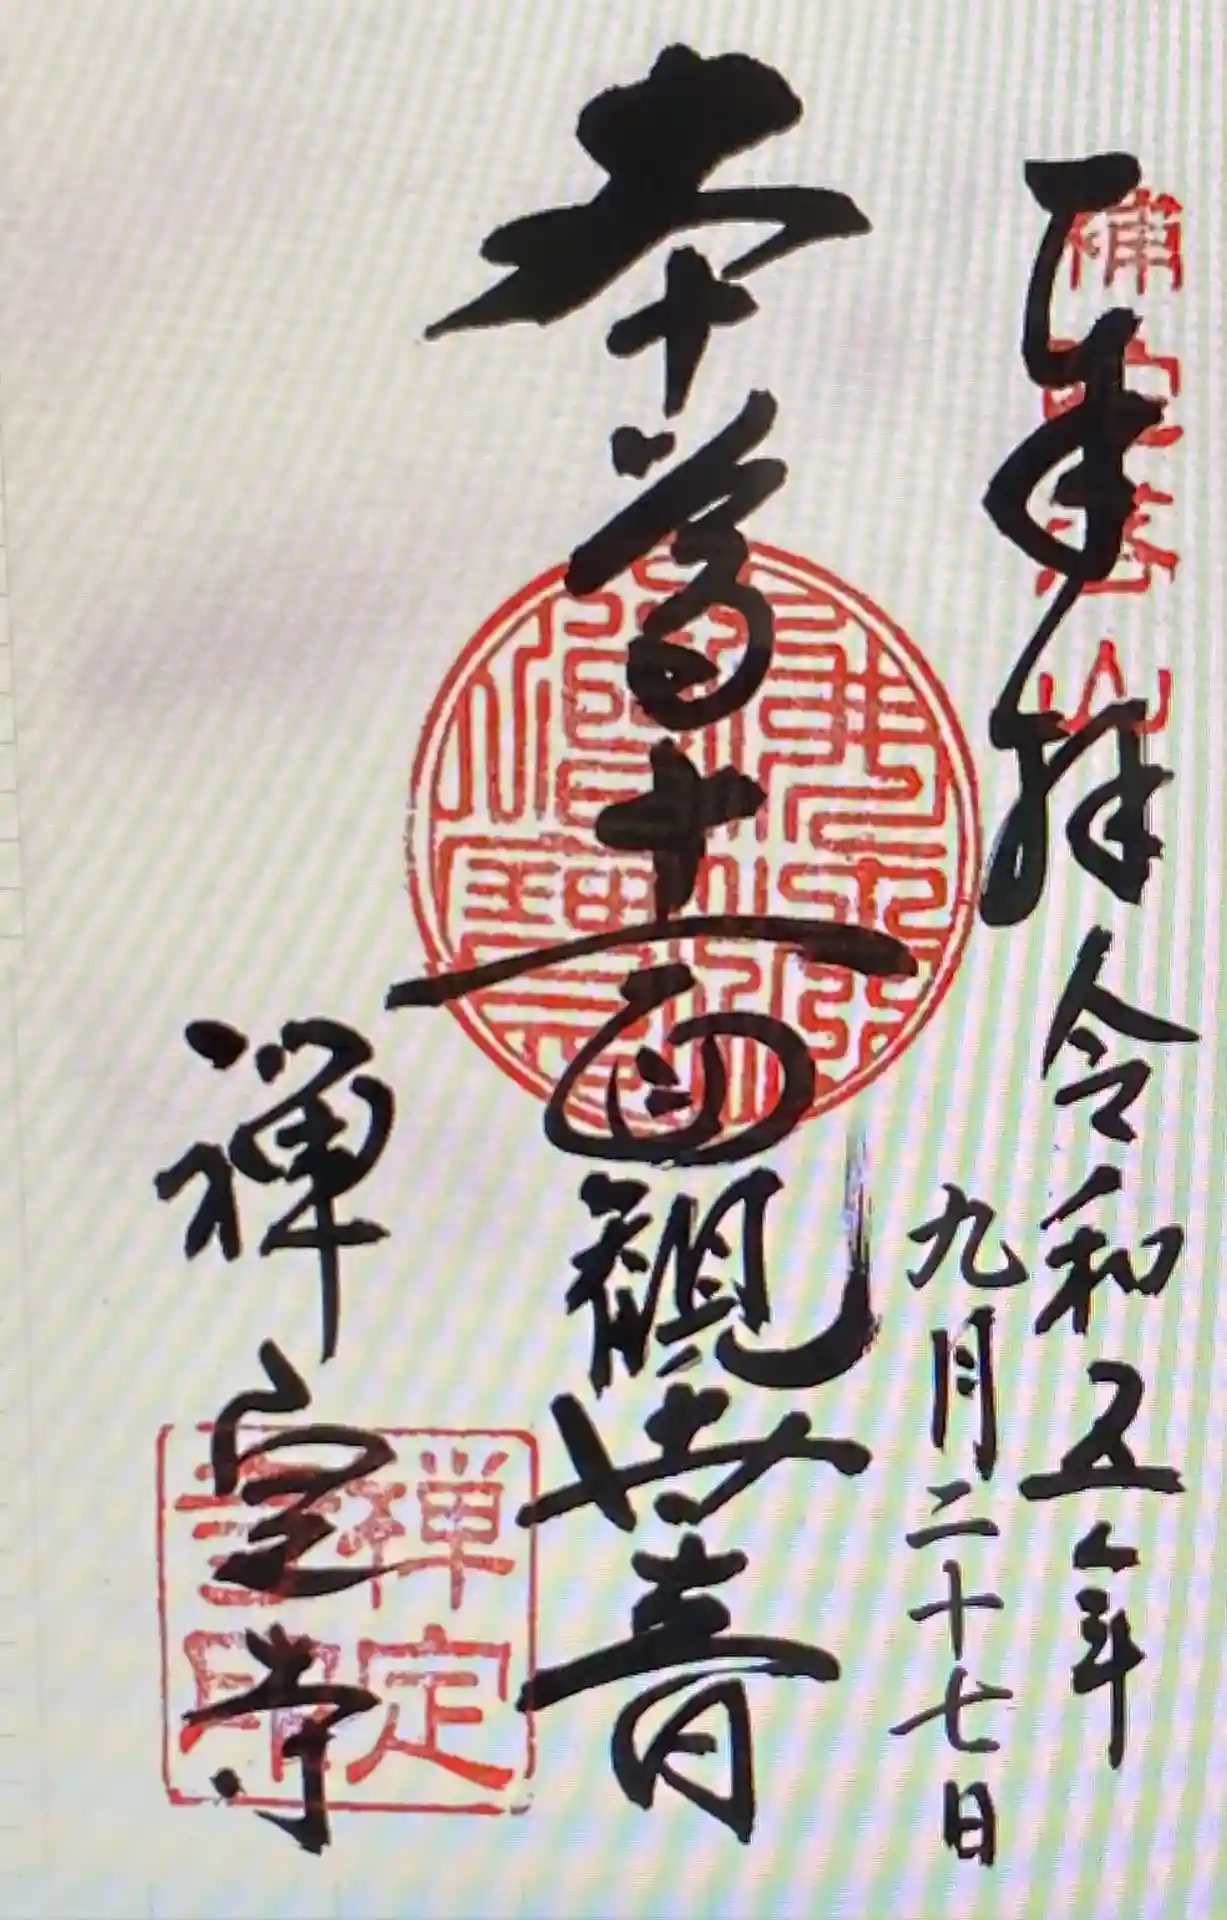 奉拝
令和五年
九月二十七日
本尊十一面観世音
禅定寺
補陀落山
禅定
寺印